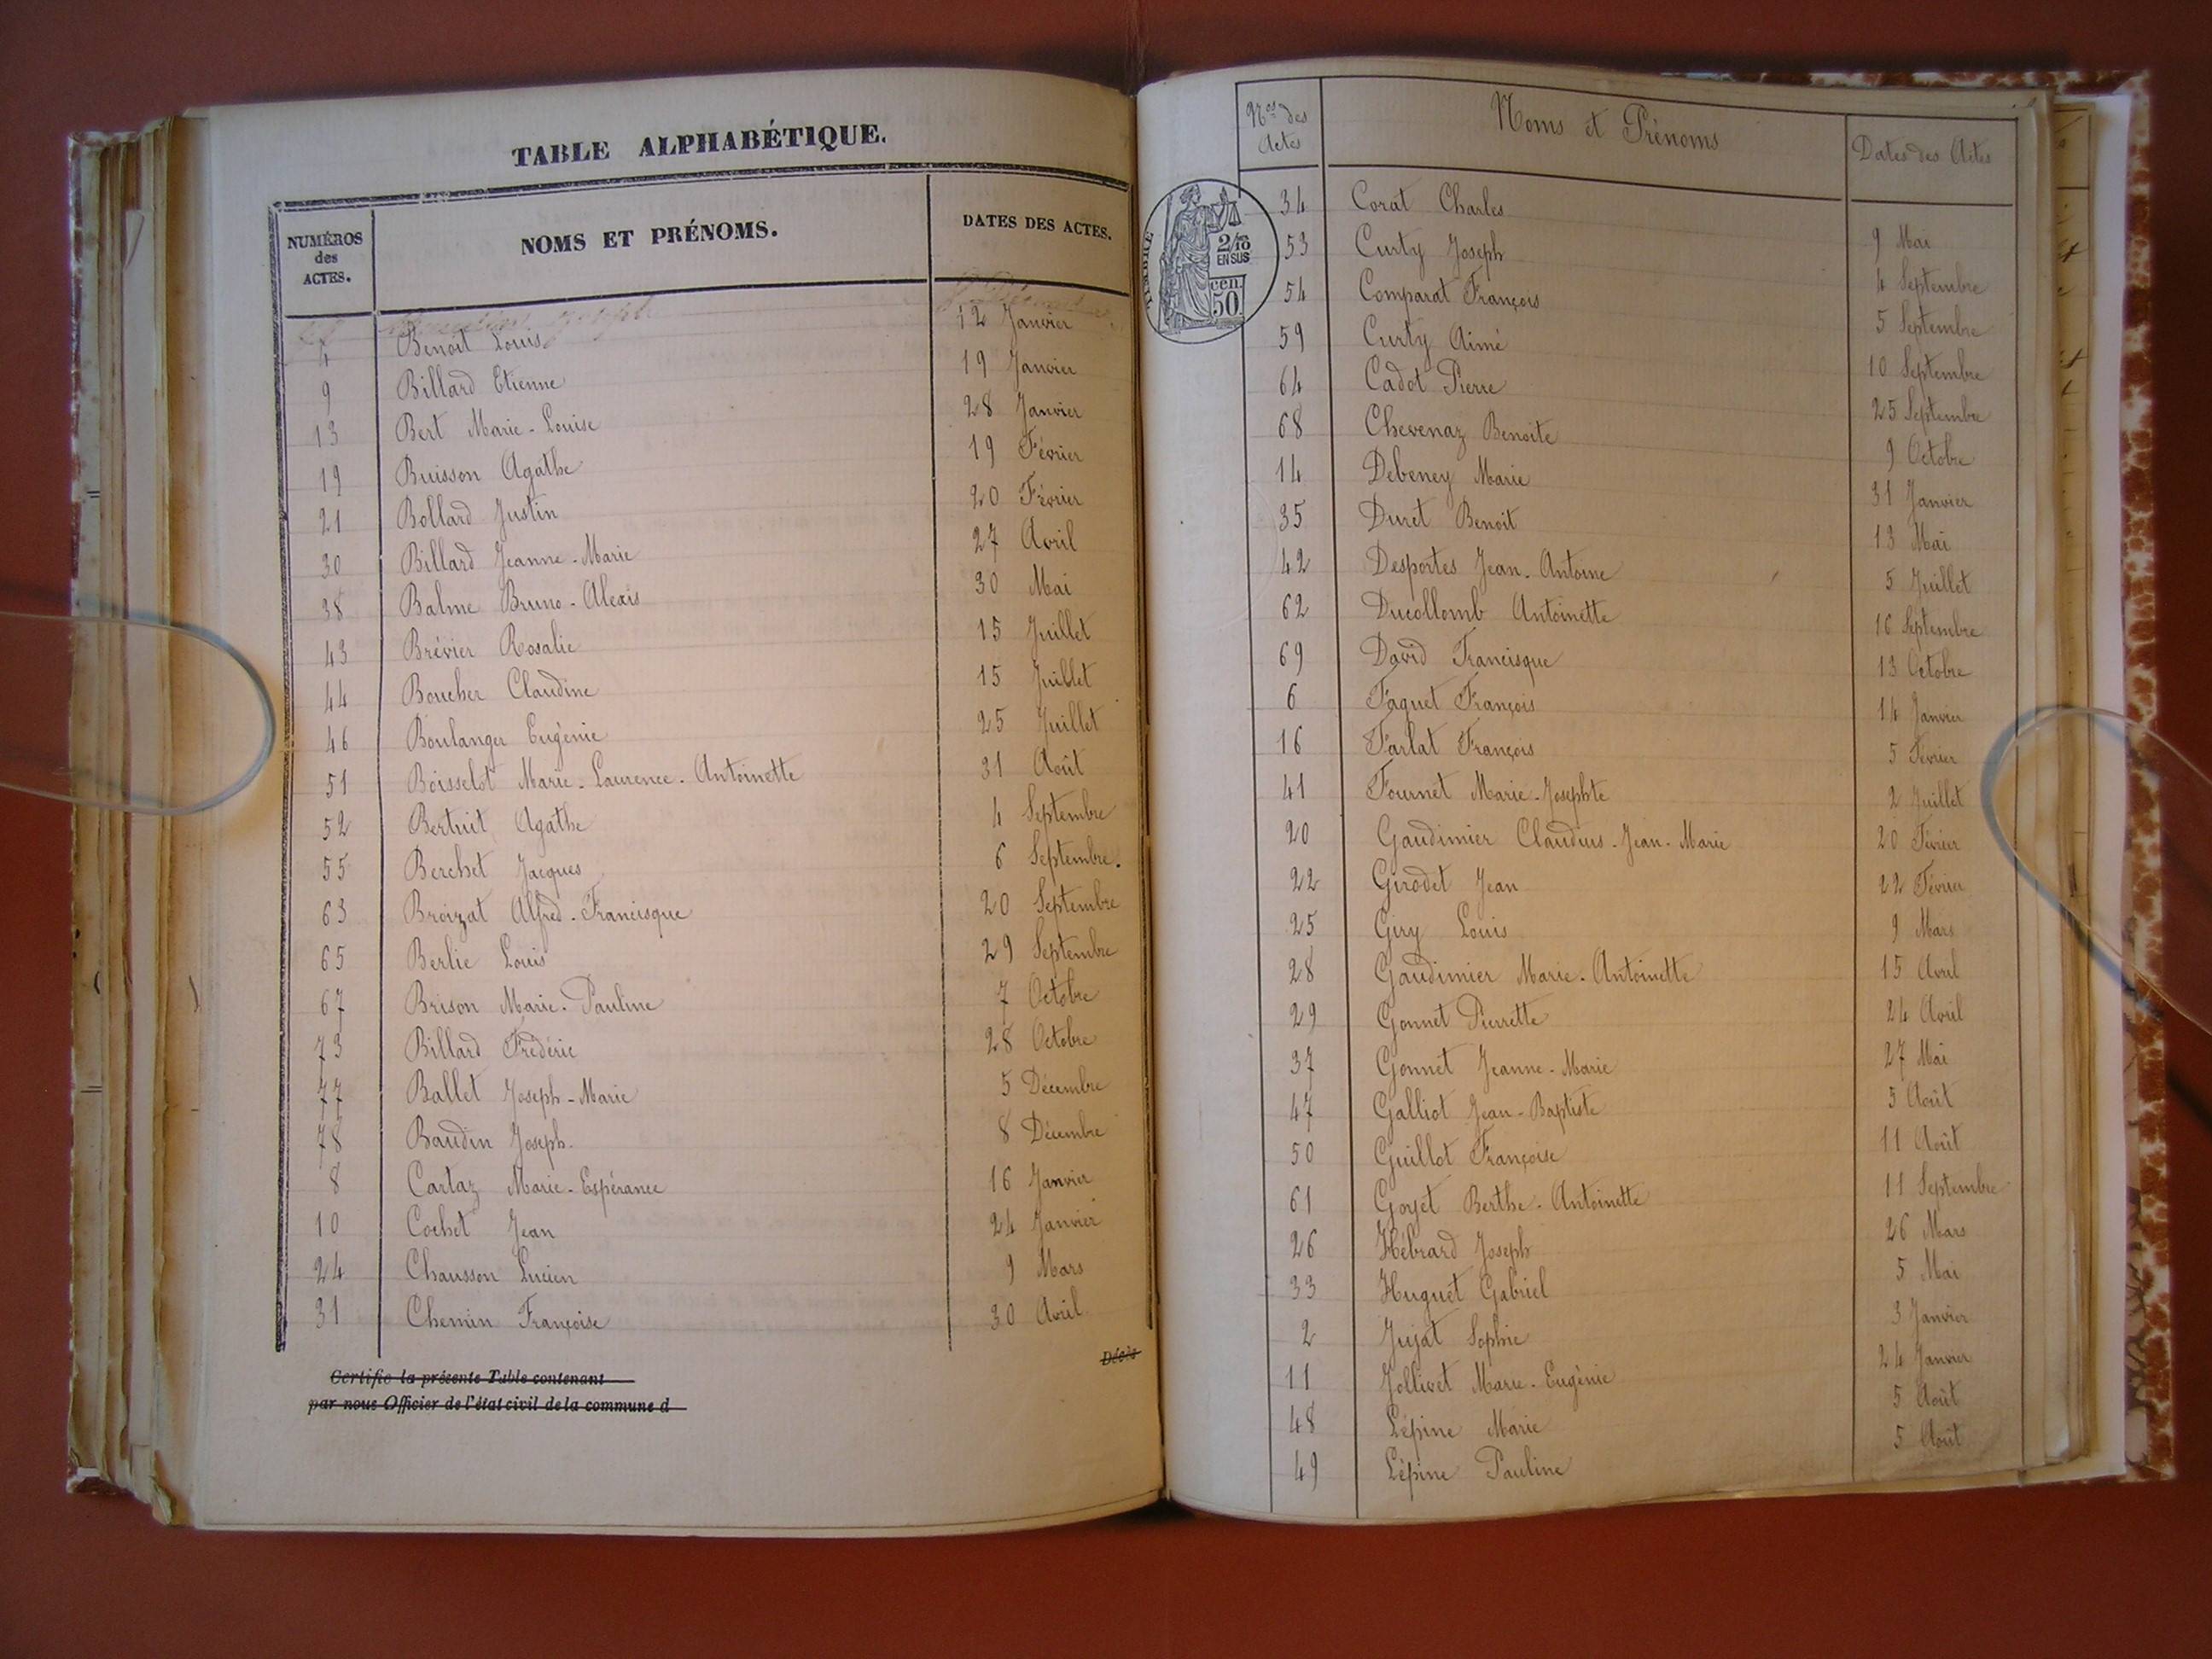 TABLE ALPHABÉTIQUE.
NUMÉROS des ACTES. NOMS ET PRÉNOMS. DATES DES ACTES.
4 Benoit Louis 12 Janvier
9 Billard Etienne 19 Janvier
13 Bert Marie-Louise 28 Janvier
19 Buisson Agathe 19 Février
21 Bollard Justin 20 Février
30 Billard Jeanne-Marie 27 Avril
38 Balme Bruno-Alexis 30 Mai
43 Brévier Rosalie 15 Juillet
44 Boucher Claudine 15 Juillet
46 Boulanger Eugènie 25 Juillet
51 Boisselot Marie-Laurence-Antoinette 31 Août
52 Bertuit Agathe 4 Septembre
55 Berchet Jacques 6 Septembre.
63 Broizat Alfred-Francisque 20 Septembre
65 Berlie Louis 29 Septembre
67 Brison Marie-Pauline 7 Octobre
73 Billard Frédéric 28 Octobre
77 Ballet Joseph-Marie 5 Décembre
78 Baudin Joseph 8 Décembre
8 Cartaz Marie-Espérance 16 Janvier
10 Cochet Jean 24 Janvier
24 Chausson Lucien 9 Mars
31 Chemin Françoise 30 Avril
Décès
Certifie la présente Table contenant
par nous Officier de l'état civil de la commune d
Nos des Actes Noms et Prénoms Dates des Actes
TIMBRE
2/10
EN SUS
cen.
50
34 Corat Charles 9 Mai
53 Curty Joseph 4 Septembre
54 Comparat François 5 Septembre
59 Curty Aimé 10 Septembre
64 Cadot Pierre 25 Septembre
68 Chevenaz Benoite 9 Octobre
14 Debeney Marie 31 Janvier
35 Duret Benoit 13 Mai
42 Desportes Jean-Antoine 5 Juillet
62 Ducollomb Antoinette 16 Septembre
69 David Francisque 13 Octobre
6 Faquet François 14 Janvier
16 Farlat François 5 Février
41 Fournet Marie-Josephte 2 Juillet
20 Gaudimier Claudius-Jean-Marie 20 Février
22 Girodet Jean 22 Février
25 Giry Louis 9 Mars
28 Gaudimier Marie-Antoinette 15 Avril
29 Gonnet Pierrette 24 Avril
37 Gonnet Jeanne-Marie 27 Mai
47 Galliot Jean-Baptiste 5 Août
50 Guillot Françoise 11 Août
61 Goyet Berthe-Antoinette 11 Septembre
26 Hébrard Joseph 26 Mars
33 Huguet Gabriel 5 Mai
2 Jujat Sophie 3 Janvier
11 Jollivet Marie-Eugènie 24 Janvier
48 Lépine Marie 5 Août
49 Lépine Pauline 5 Août